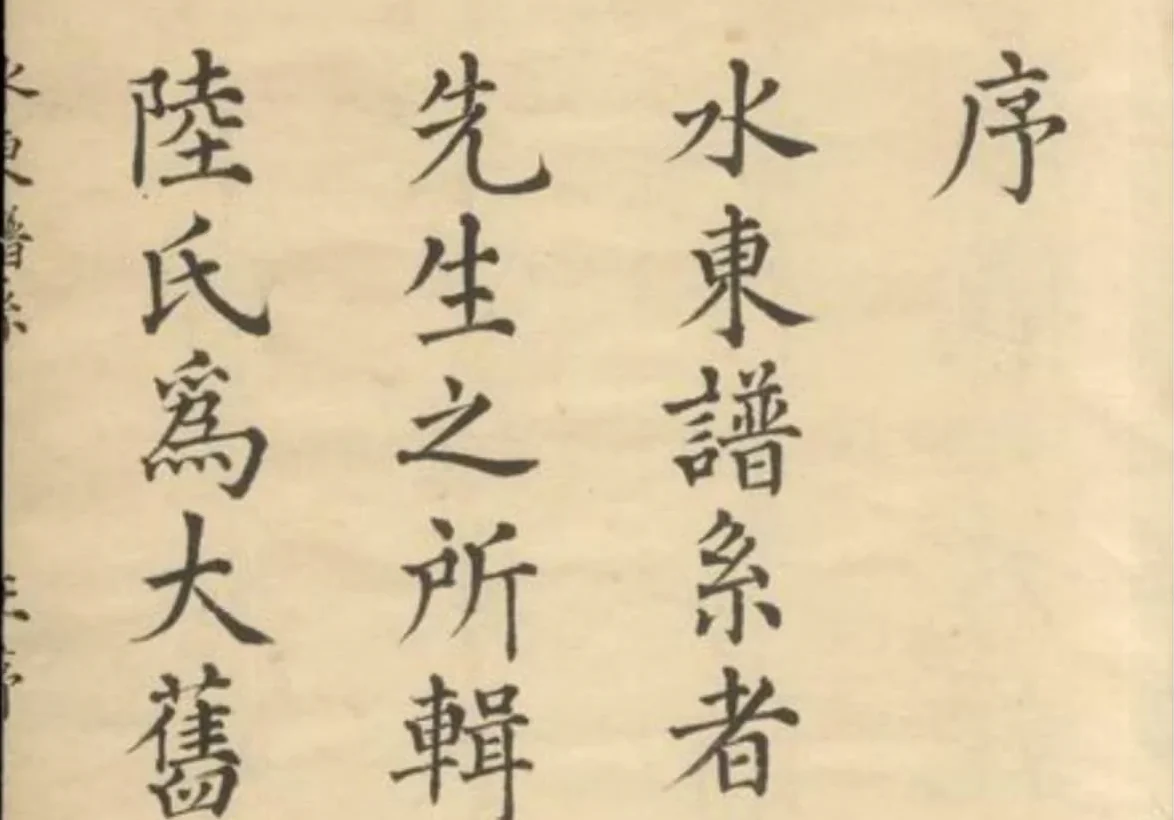 序
水東譜系者
先生之所輯
陸氏為大舊